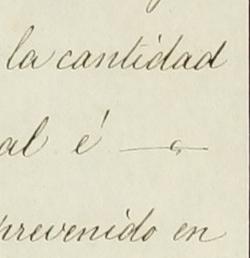 la cantidad
al é
prevenido en